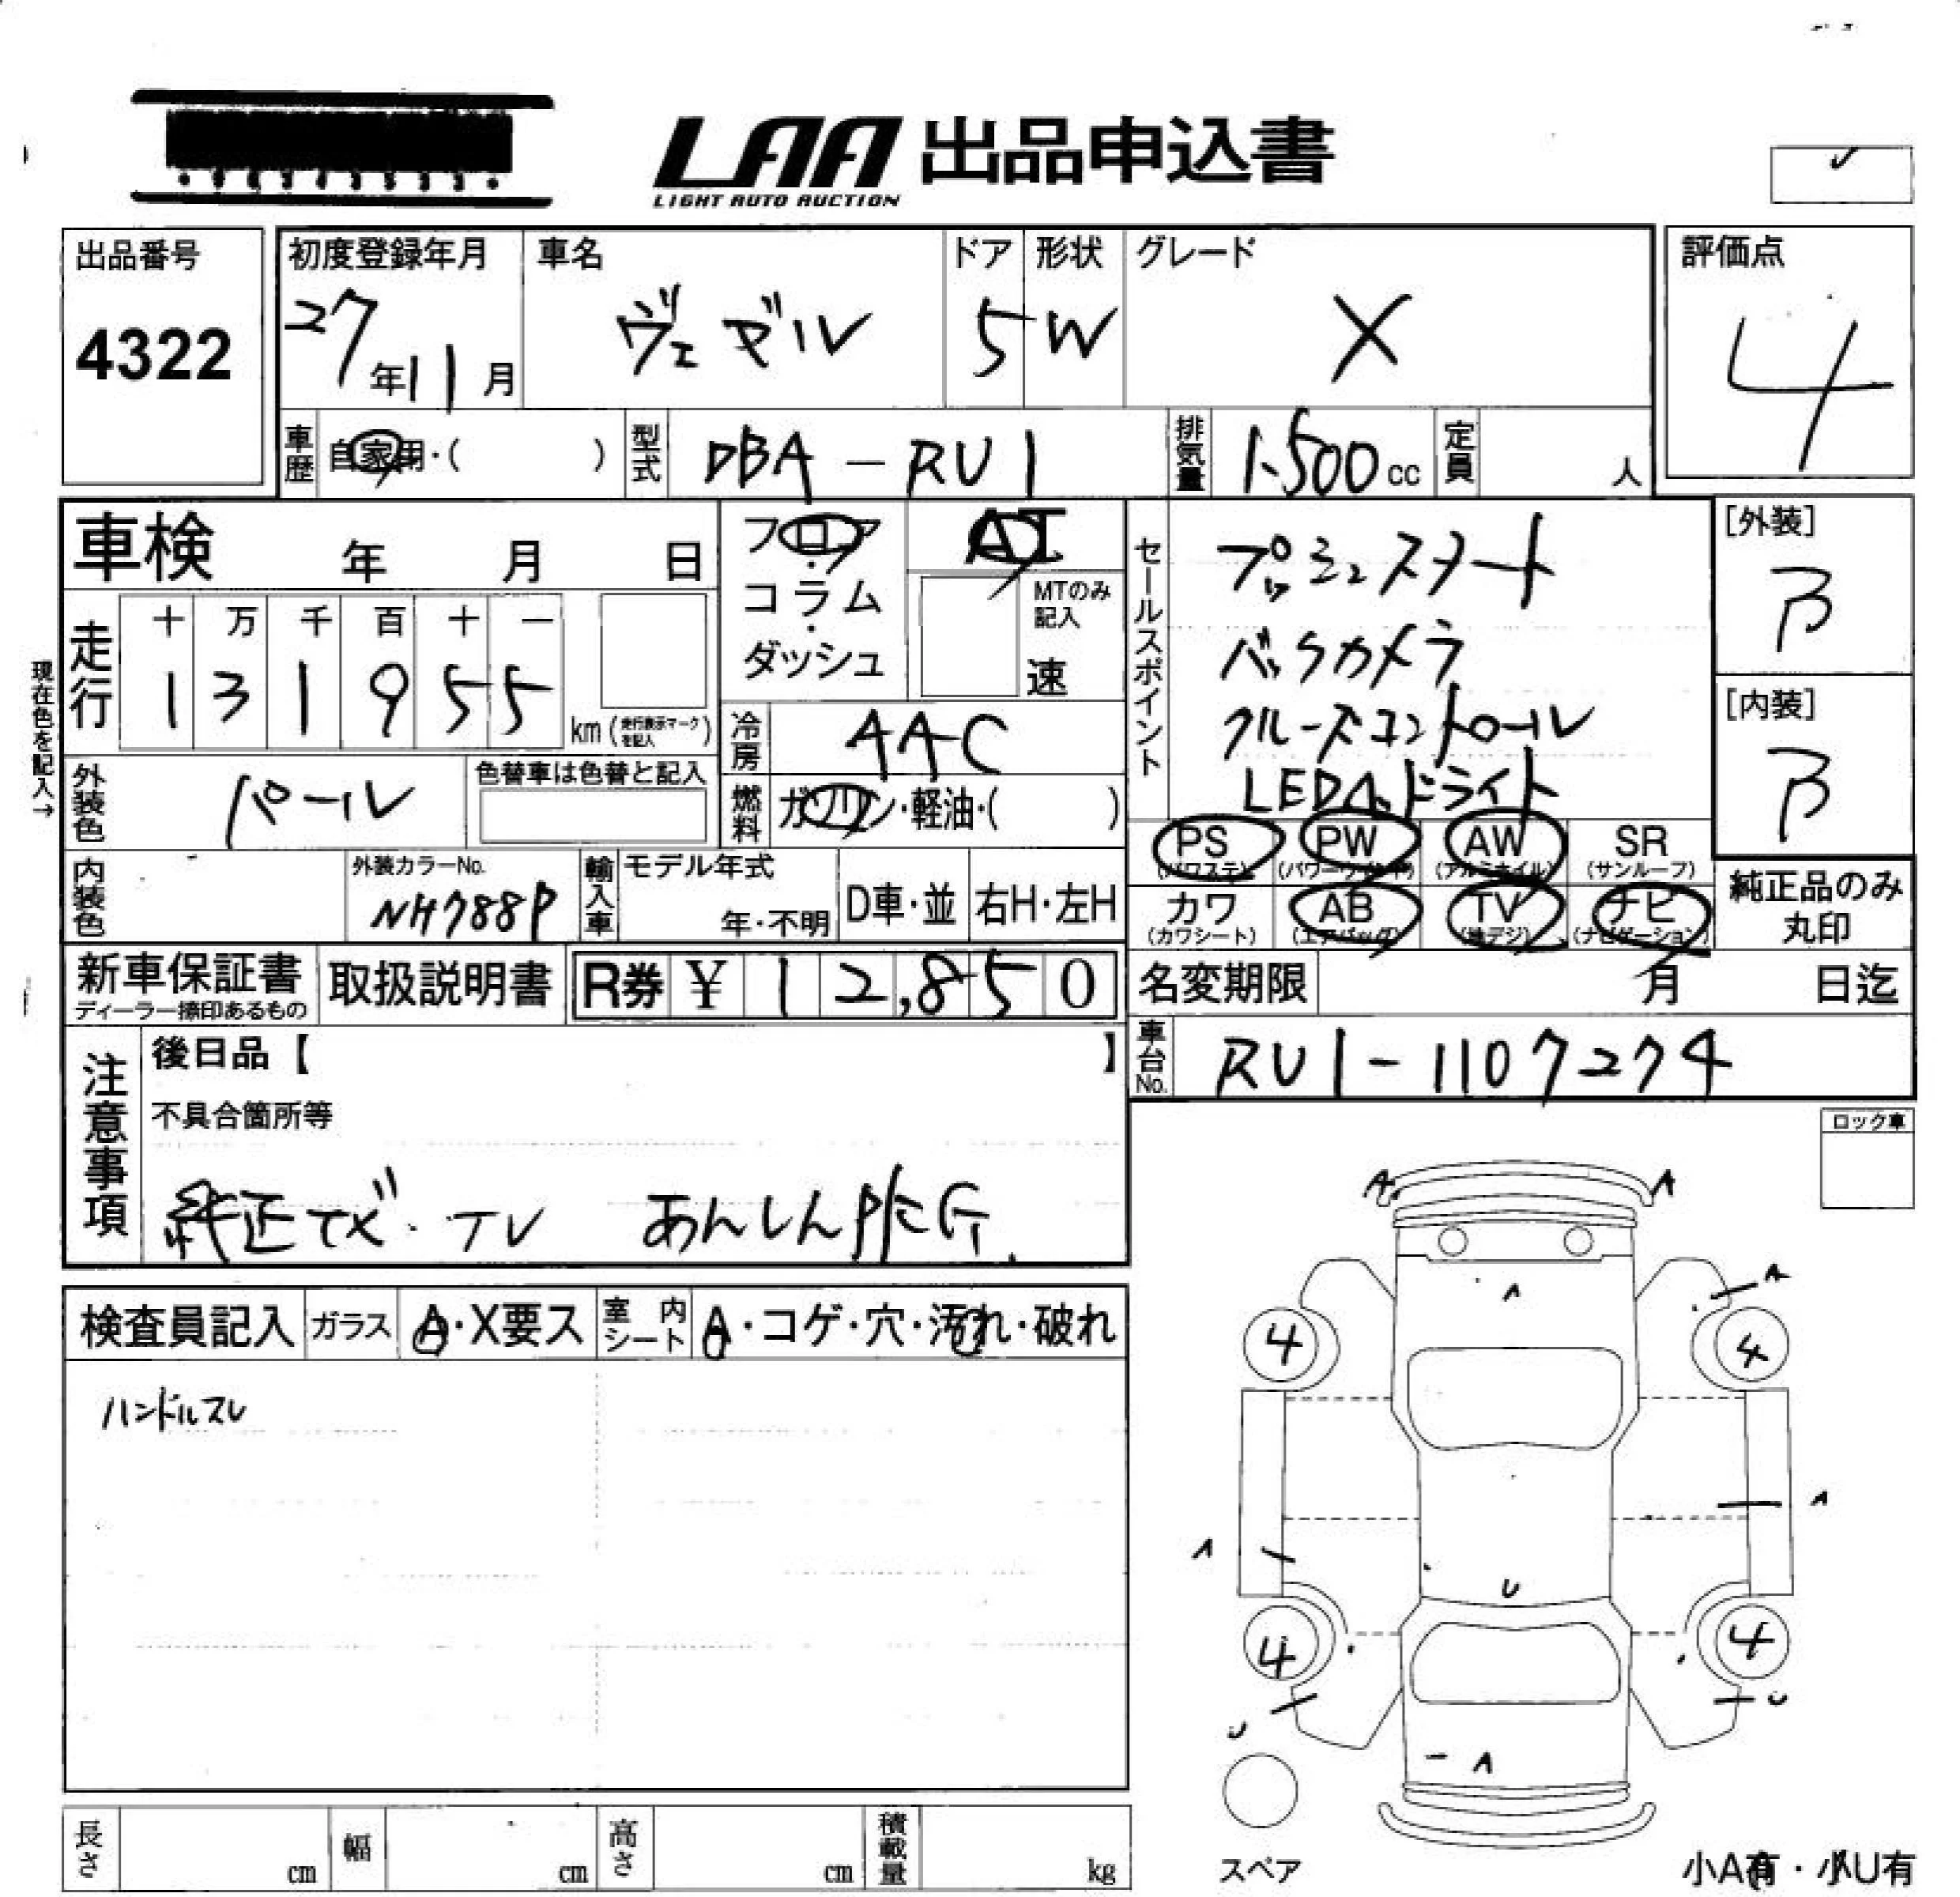 LAA 出品申込書
LIGHT AUTO AUCTION
出品番号
4322
初度登録年月
27年11月
車名
ヴェゼル
ドア
5
形状
W
グレード
X
評価点
4
車歴
自家用・( )
型式
DBA-RU1
排気量
1,500cc
定員
人
車検 年 月 日
走行
十 万 千 百 十 一
1 3 1 9 5 5
km (走行表示マークを記入)
現在色を記入→
外装色
パール
色替車は色替と記入
内装色
外装カラーNo.
NH788P
フロア
・
コラム
・
ダッシュ
AT
MTのみ記入
速
冷房
AAC
燃料
ガソリン・軽油・( )
輸入車
モデル年式
年・不明
D車・並
右H・左H
セールスポイント
プッシュスタート
バックカメラ
クルーズコントロール
LEDヘッドライト
PS
(パワステ)
PW
(パワーウインドウ)
AW
(アルミホイル)
SR
(サンルーフ)
カワ
(カワシート)
AB
(エアバッグ)
TV
(地デジ)
ナビ
(ナビゲーション)
[外装]
B
[内装]
B
純正品のみ
丸印
新車保証書
ディーラー捺印あるもの
取扱説明書
R券 ¥ 12,850
名変期限 月 日迄
車台No.
RU1-1107274
注意事項
後日品【 】
不具合箇所等
純正ナビ・TV あんしんPKG.
ロック車
検査員記入
ガラス
A・X要ス
室内シート
A・コゲ・穴・汚れ・破れ
ハンドルスレ
A A
A A
4 4
A
A
U
4 4
U U
A
スペア
小A有・小U有
長さ cm
幅 cm
高さ cm
積載量 kg